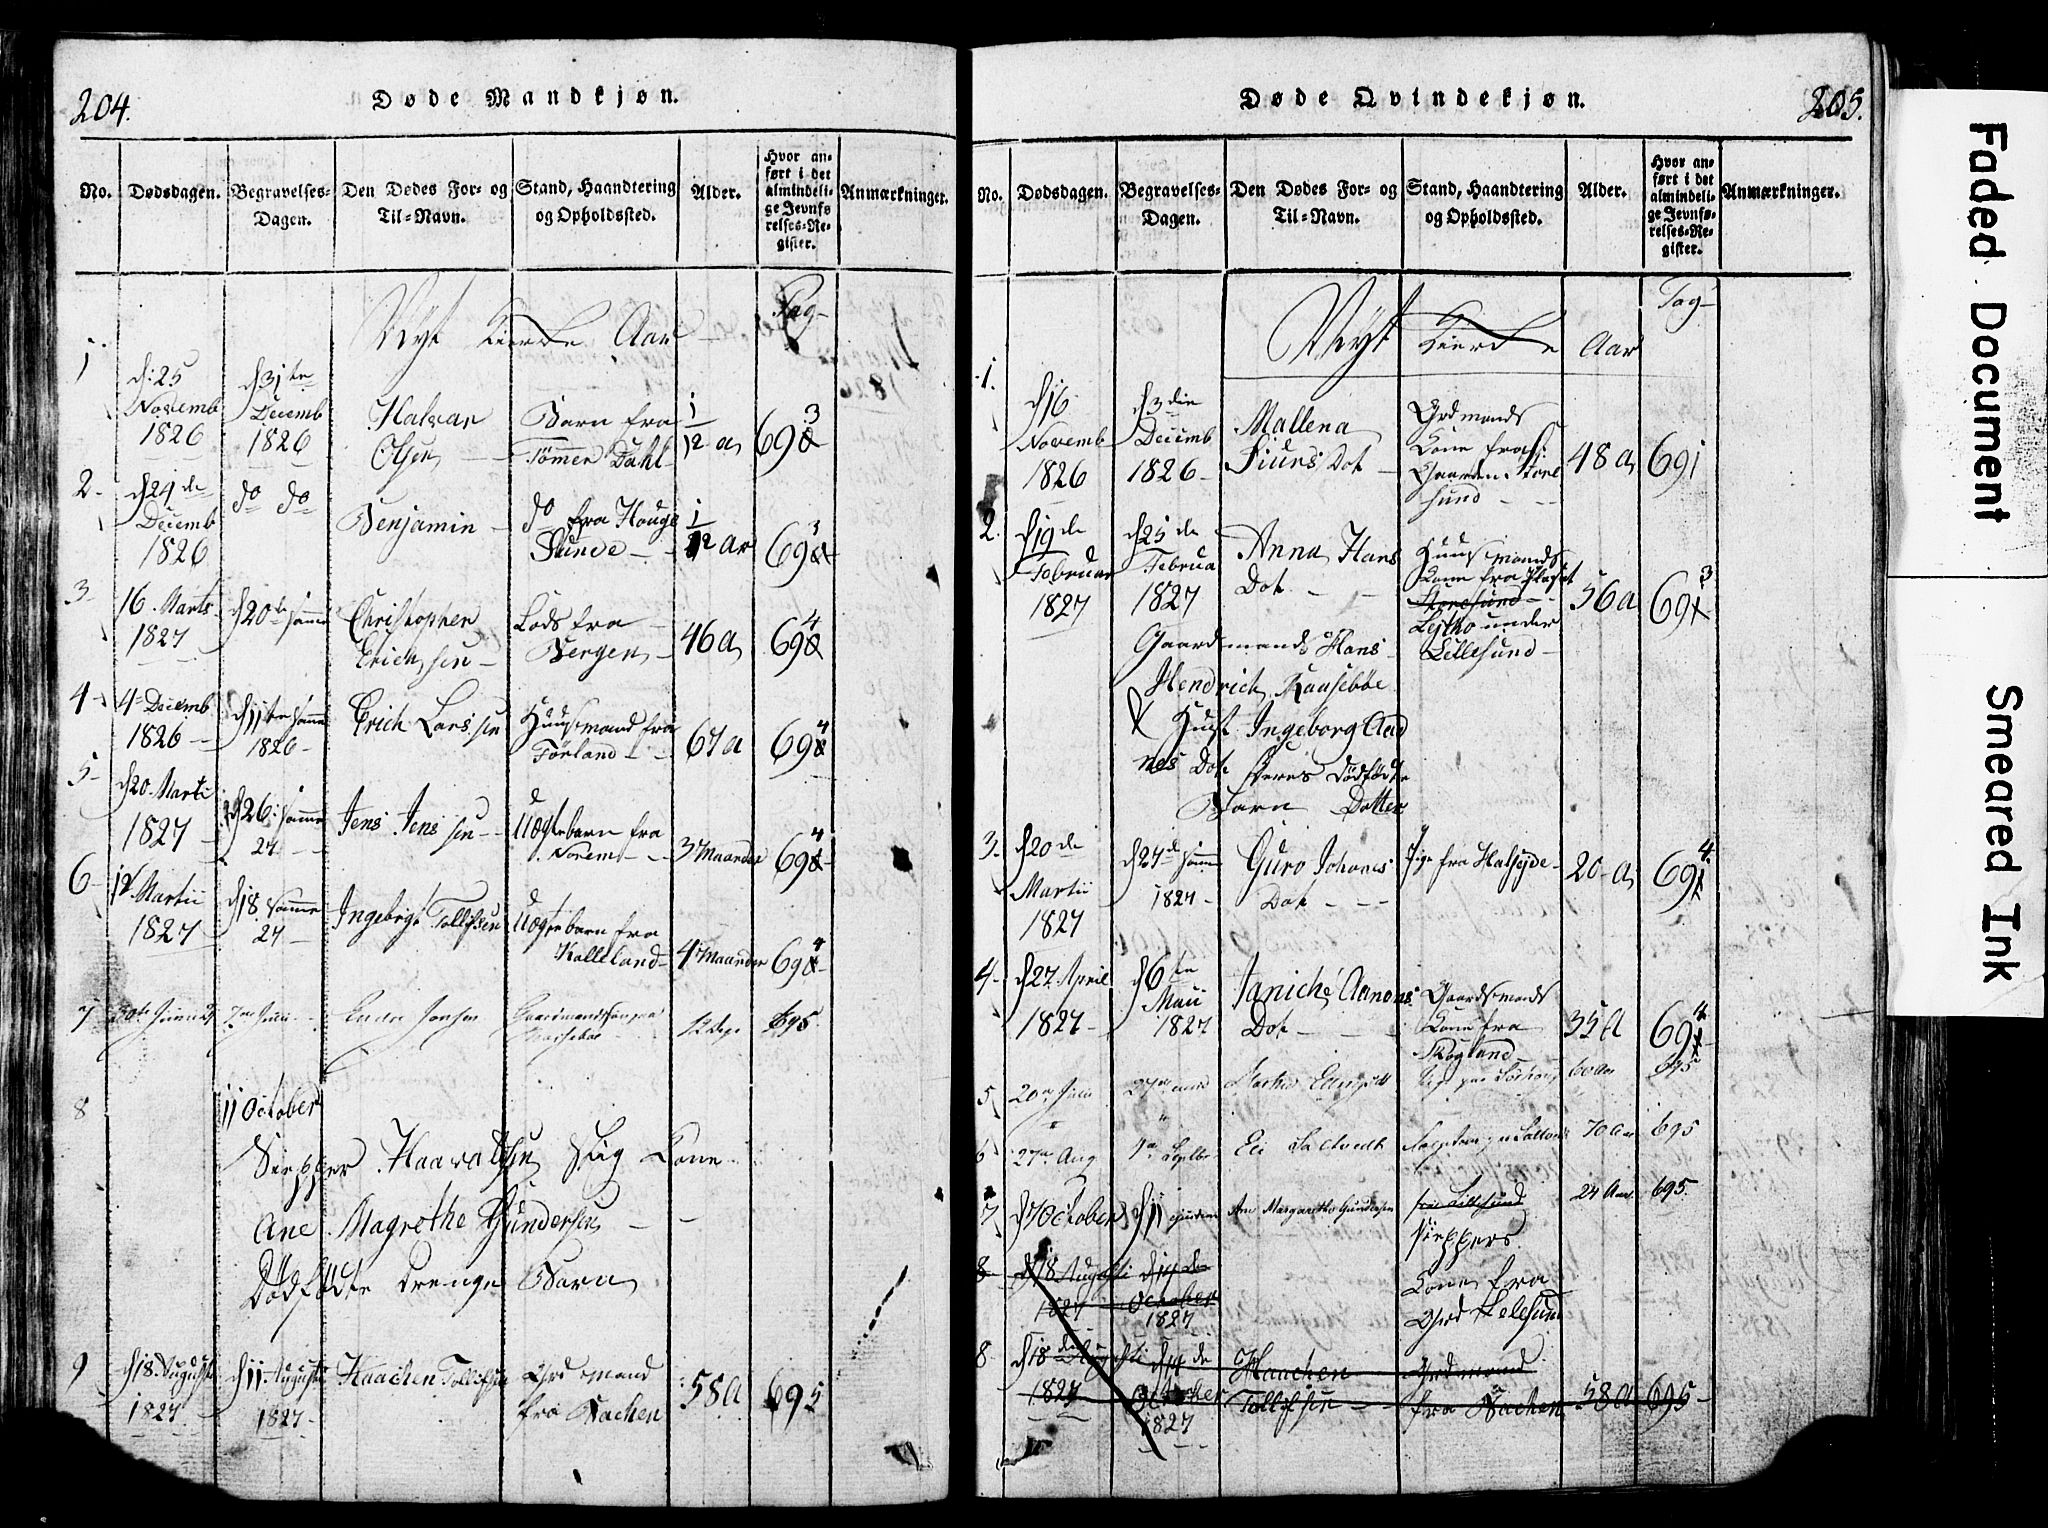 204.
Døde Mandkjøn.
No.
Dødsdagen.
Begravelses-
Dagen.
Den Dødes For- og
Til-Navn.
Stand, Haandtering
og Opholdssted.
Alder.
Hvor an-
ført i det
almindeli-
ge Jevnfø-
relses-Re-
gister.
Anmærkninger.
Nyt Kierke Aar
Pag-
1
d: 25
Novemb
1826
d 31te
Decemb
1826
Halvar
Olsen
Barn fra
Tömmer Dahl
1/12 a
693
2-
d 24de
Decemb
1826
do do
Benjamin
do fra Houge
Sunde
1/12 ar
693
3-
16. Marts
1827
d 20de samme
Christopher
Erichsen
Lods fra
Bergen
46 a
694
4-
4 Decemb
1826
d 11te samme
1826
Erich Larssen
Huusmand fra
Förland
67 a
694
5-
d 20. Marti
1827
d 26. samme
27
Jens Jenssen
Uægtebarn fra
Norem
3 Maander
694
6-
12 Martii
1827
d 18. samme
27
Ingebrigt Tollefsen
Uægtebarn fra
Kolleland
4 Maander
694
7
695
8
11 October
Haavalsen Siig Kone
Ane Magrethe Gundersen
Dödfödte Drenge Barn
9
d 18 Augusti
1827
d 11 Augusti
1827
Haachen Tollefsen
Grdmand
fra Bachen
58 A
695
205.
Døde Qvindekjøn.
No.
Dødsdagen.
Begravelses-
Dagen.
Den Dødes For- og
Til-Navn.
Stand, Haandtering
og Opholdssted.
Alder.
Hvor an-
ført i det
almindeli-
ge Jevnfø-
relses-Re-
gister.
Anmærkninger.
Nyt Kierke Aar
Pag-
1.
d 16
Novemb
1826
d 3die
Decemb
1826
Mallena
Siurs Dot
Grdmands
Kone fra
Gaarden Store
sund
48 a
691
2.
d 19de
Februar
1827
d 25de
Februa
1827
Anna Hans
Dot
Huusmands
Kone fra Pladset
Storesund
under
Lillesund
56 a
693
Gaardmands Hans
Hendrich
& Hust Ingeborg Aad
nes Dot deres dödfödte
Barn Dotter
3.
d 20de
Martii
1827
d 24d samme
1827
Guro Johanes
Dot
Pige fra Halseyde
20 a
694
4-
d 27 April
1827
d 6te
Maii
1827
Janiche Aanons
Dot
Gaardmands
Kone fra
Skogland
35 A
694
5
20 Juni
60 Aar
695
6
27 Aug
1 Septbr
70 Aar
695
7
d 7 October
d 11
Ane Margarethe Gundersen
fra Lillesund
Skippers
Kone fra
24 Aar
695.
8
d 18 Augusti
1827
d 14de
October
1827
8
d 18 Augusti
1827
d 14de
October
1827
Haachen
Tollefsen
Grdmand
fra Bachen
58 A
695
Faded Document
Smeared Ink